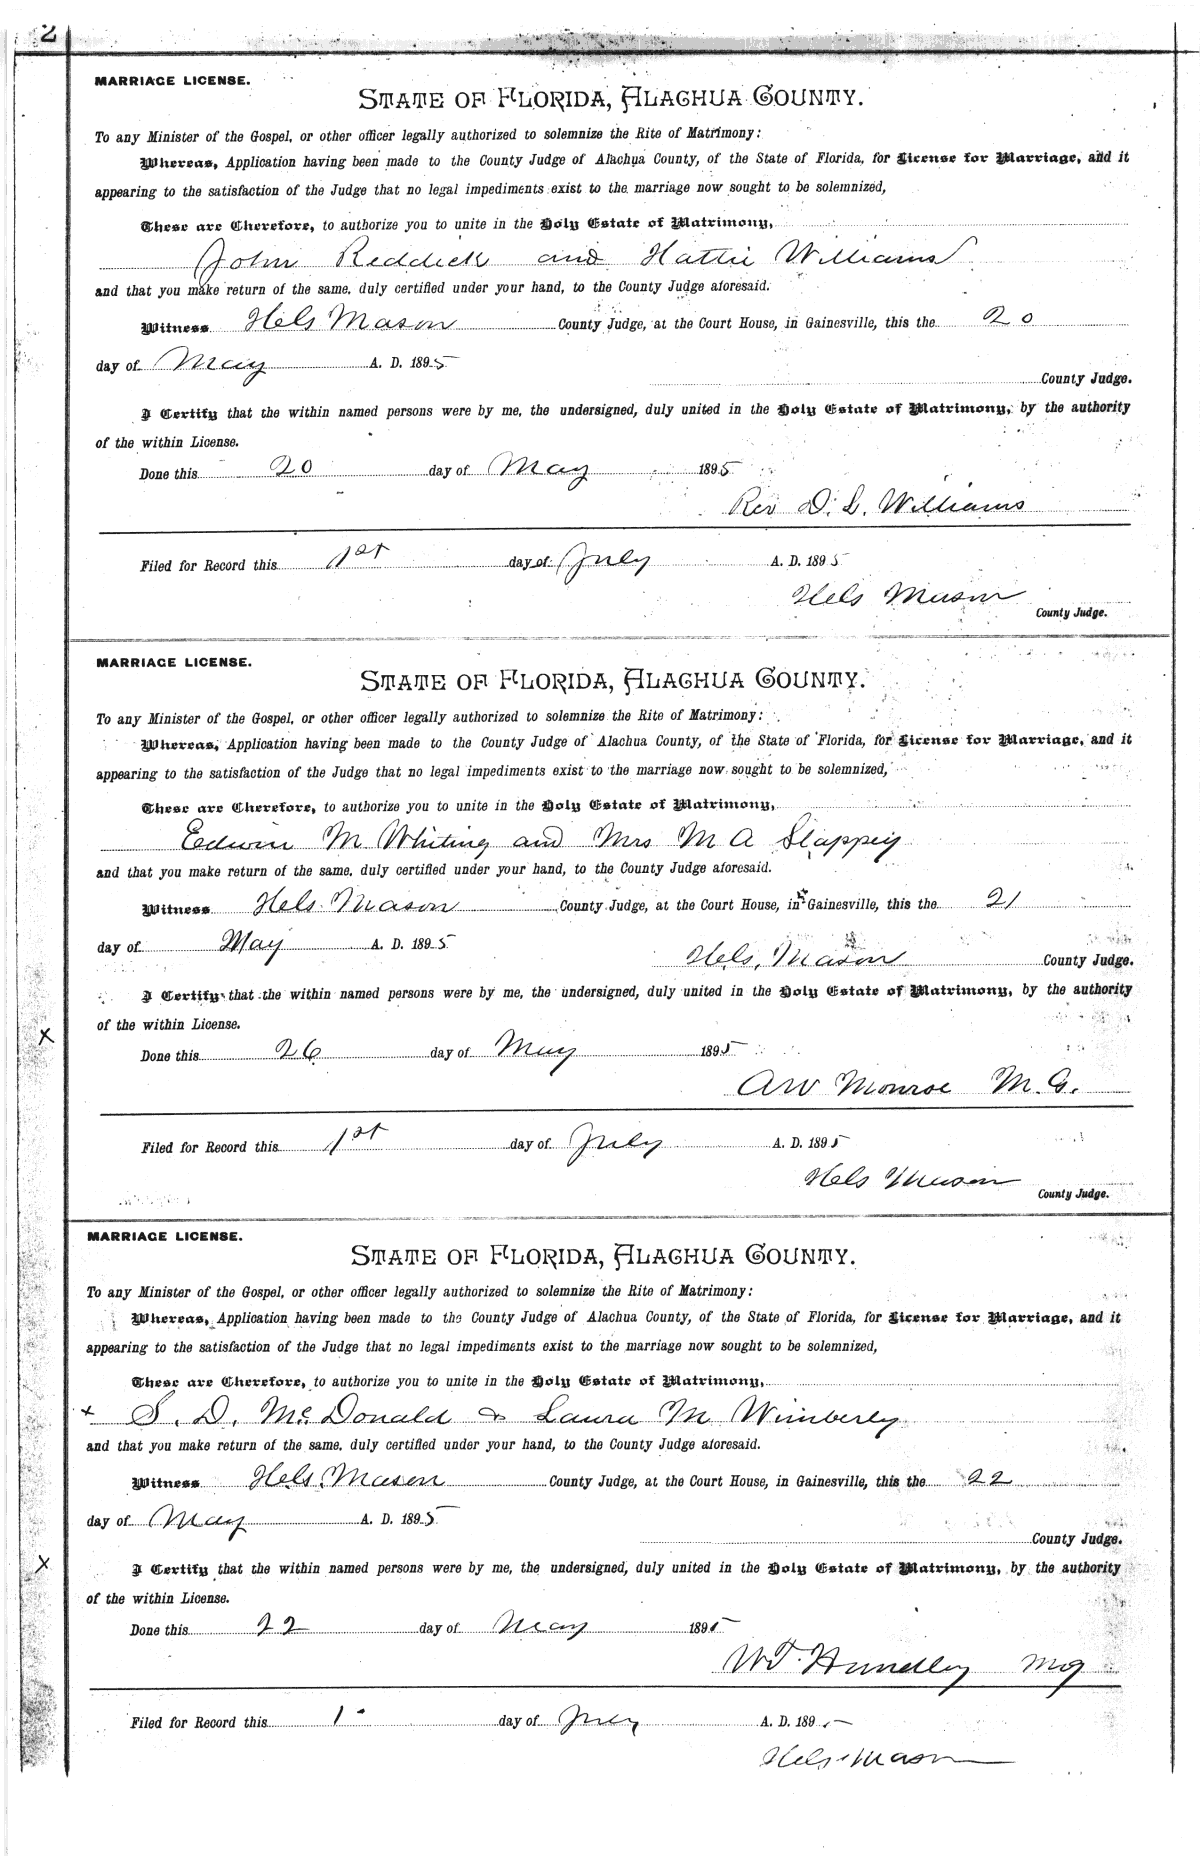 2
MARRIAGE LICENSE.
STATE OF FLORIDA, ALACHUA COUNTY.
To any Minister of the Gospel, or other officer legally authorized to solemnize the Rite of Matrimony:
Whereas, Application having been made to the County Judge of Alachua County, of the State of Florida, for License for Marriage, and it
appearing to the satisfaction of the Judge that no legal impediments exist to the marriage now sought to be solemnized,
These are Therefore, to authorize you to unite in the Holy Estate of Matrimony,
John Reddick and Hattie Williams
and that you make return of the same, duly certified under your hand, to the County Judge aforesaid.
Witness Hels Mason County Judge, at the Court House, in Gainesville, this the 20
day of May A. D. 1895
County Judge.
I Certify that the within named persons were by me, the undersigned, duly united in the Holy Estate of Matrimony, by the authority
of the within License.
Done this 20 day of May 1895
Rev D. L. Williams
Filed for Record this 1st day of July A. D. 1895
Hels Mason
County Judge.
MARRIAGE LICENSE.
STATE OF FLORIDA, ALACHUA COUNTY.
To any Minister of the Gospel, or other officer legally authorized to solemnize the Rite of Matrimony:
Whereas, Application having been made to the County Judge of Alachua County, of the State of Florida, for License for Marriage, and it
appearing to the satisfaction of the Judge that no legal impediments exist to the marriage now sought to be solemnized,
These are Therefore, to authorize you to unite in the Holy Estate of Matrimony,
Edwin M Whiting and Mrs M A Slappey
and that you make return of the same, duly certified under your hand, to the County Judge aforesaid.
Witness Hels Mason County Judge, at the Court House, in Gainesville, this the 21
day of May A. D. 1895
Hels, Mason County Judge.
I Certify that the within named persons were by me, the undersigned, duly united in the Holy Estate of Matrimony, by the authority
of the within License.
X
Done this 26 day of May 1895
AW Monroe M. G.
Filed for Record this 1st day of July A. D. 1895
Hels Mason
County Judge.
MARRIAGE LICENSE.
STATE OF FLORIDA, ALACHUA COUNTY.
To any Minister of the Gospel, or other officer legally authorized to solemnize the Rite of Matrimony:
Whereas, Application having been made to the County Judge of Alachua County, of the State of Florida, for License for Marriage, and it
appearing to the satisfaction of the Judge that no legal impediments exist to the marriage now sought to be solemnized,
These are Therefore, to authorize you to unite in the Holy Estate of Matrimony,
x S. D. McDonald & Laura M Wimberly
and that you make return of the same, duly certified under your hand, to the County Judge aforesaid.
Witness Hels. Mason County Judge, at the Court House, in Gainesville, this the 22
day of May A. D. 1895
County Judge.
X
I Certify that the within named persons were by me, the undersigned, duly united in the Holy Estate of Matrimony, by the authority
of the within License.
Done this 22 day of May 1895
W.T. Hundley MG
Filed for Record this 1 day of July A. D. 1895
Hels Mason